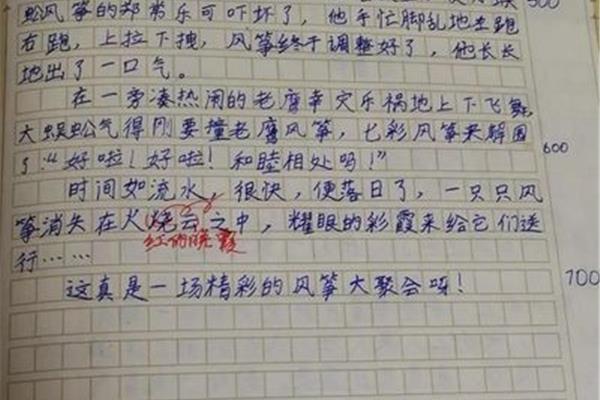 蚣风筝的郑常乐可吓坏了，他手忙脚乱地左跑
右跑，上拉下拽，风筝终于调整好了，他长长
地出了一口气。
在一旁凑热闹的老鹰幸灾乐祸地上下飞舞，
大蜈蚣气得刚要撞老鹰风筝，七彩风筝来解围
了“好啦！好啦！和睦相处吗！”
600
时间如流水，很快，便落日了，一只只风
筝消失在火烧云之中，耀眼的彩霞来给它们送
红的晚霞
行……
这真是一场精彩的风筝大聚会呀！
700